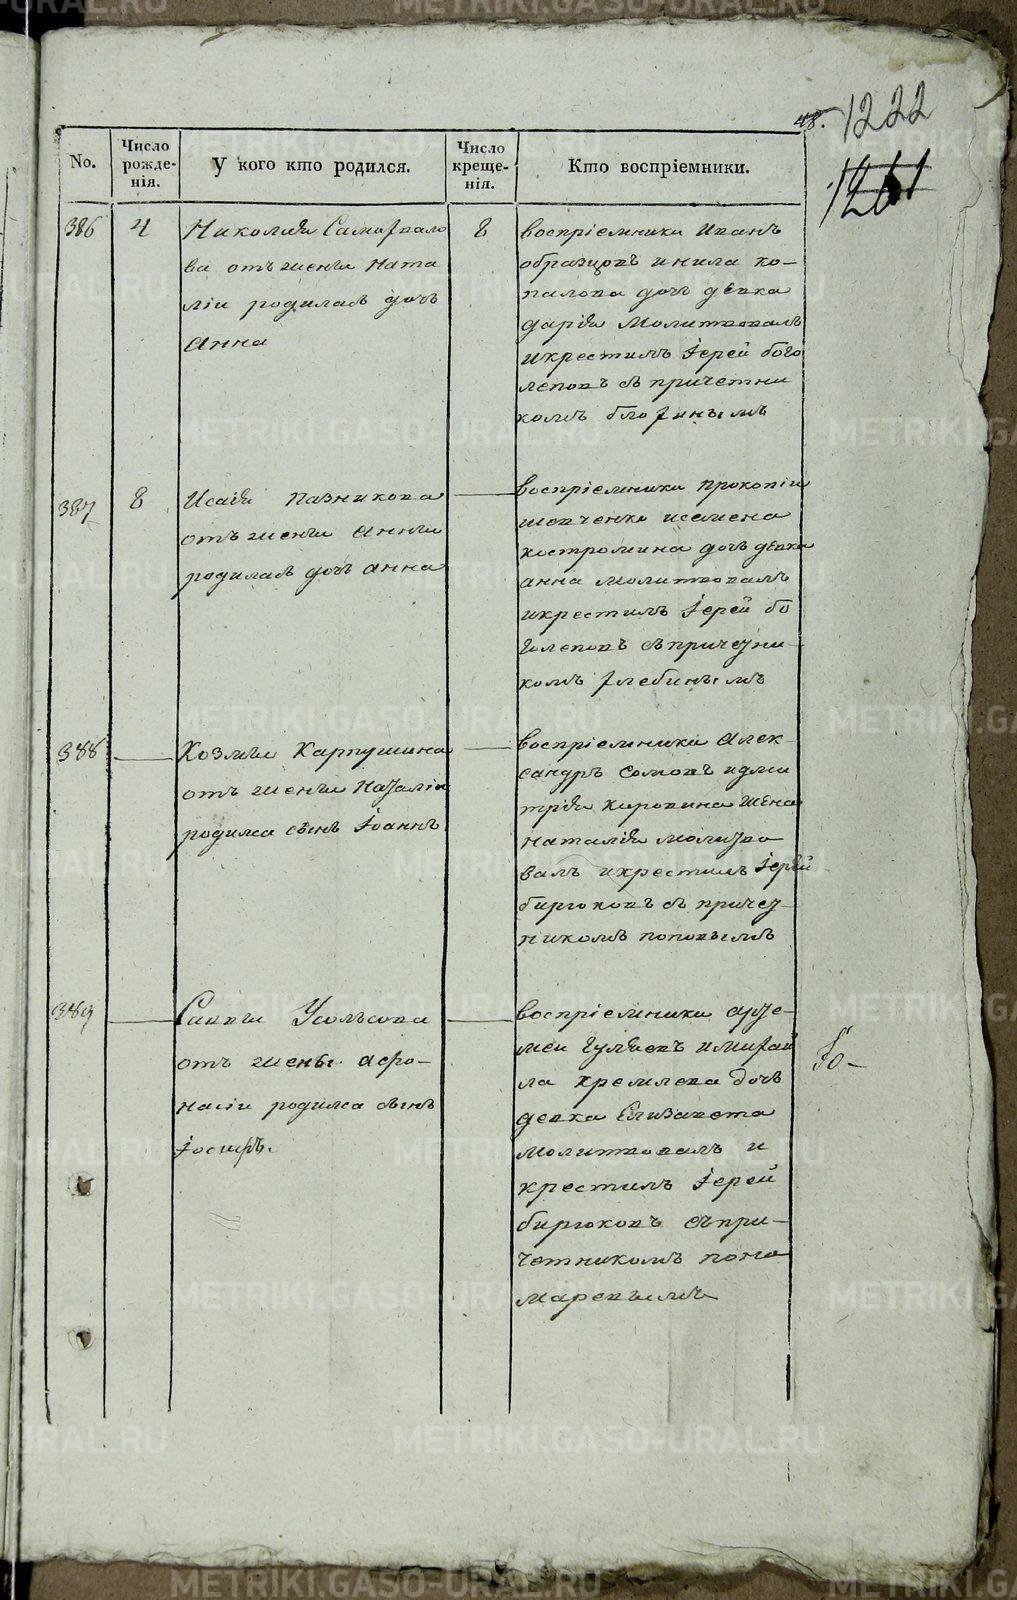 48. 1222
1261
No.
Число рожде-нія.
У кого кто родился.
Число креще-нія.
Кто воспріемники.
386
4
Николая Самохвало
ва отъ жены Ната
ліи родилась дочь
Анна
8
воспріемники Иванъ
образцовъ и нила ко-
палова дочь девка
дарія Молитвовалъ
и крестилъ Іерей бого
леповъ съ причетни
комъ
387
8
Исаія Пазникова
отъ жены Анны
родилась дочь Анна
воспріемники Прокопіи
шевченко и семена
костромина дочь девка
анна молитвовалъ
и крестилъ Іерей бо
голеповъ съ причетни
комъ глебинымъ
388
Козмы Карпушина
отъ жены Наталіи
родился сынъ Іоаннъ
воспріемники Алек-
сандръ Сомовъ и дми
трія Коровина жена
наталія молитво
валъ и крестилъ Іерей
бирюковъ съ причет-
никомъ поповымъ
389
Саввы Усольсова
отъ жены афо-
насіи родился сынъ
Іосифъ.
воспріемники арте-
меи Гуляевъ и михаи
ла кремлева дочь
девка Елизавета
молитвовалъ и
крестилъ Іерей
бирюковъ съ при-
четникомъ поно
маревымъ
Іо-
METRIKI.GASO-URAL.RU